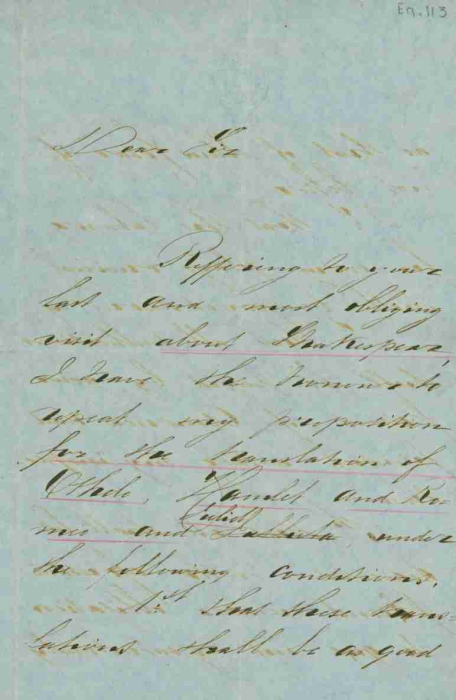 En. 113
Dear Sir
Reffering to your
last and most obliging
visit about Shakespear,
I have the honour to
repeat my proposition
for the translation of
Othelo, Hamlet and Ro=
meo and Juliet under
the following conditions.
1st that these trans=
lations shall be as good